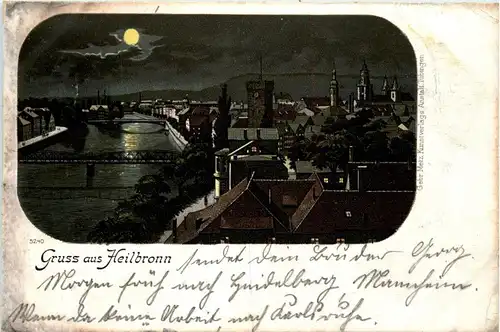 Gebr. Metz, Kunstverlags-Anstalt, Tübingen
5240
Gruss aus Heilbronn
sendet dein Bruder Georg.
Morgen früh nach Heidelberg Mannheim.
Wenn da keine Arbeit nach Karlsruhe.